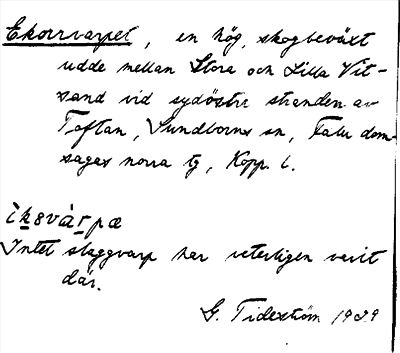 Ekorrvarpet, en hög, skogbeväxt
udde mellan Stora och Lilla Vit-
sand vid sydöstra stranden av
Toftan, Sundborns sn, Falu dom-
sagas norra tg, Kopp. l.
Intet slaggvarp har veterligen varit
där.
G. Tideström 1939